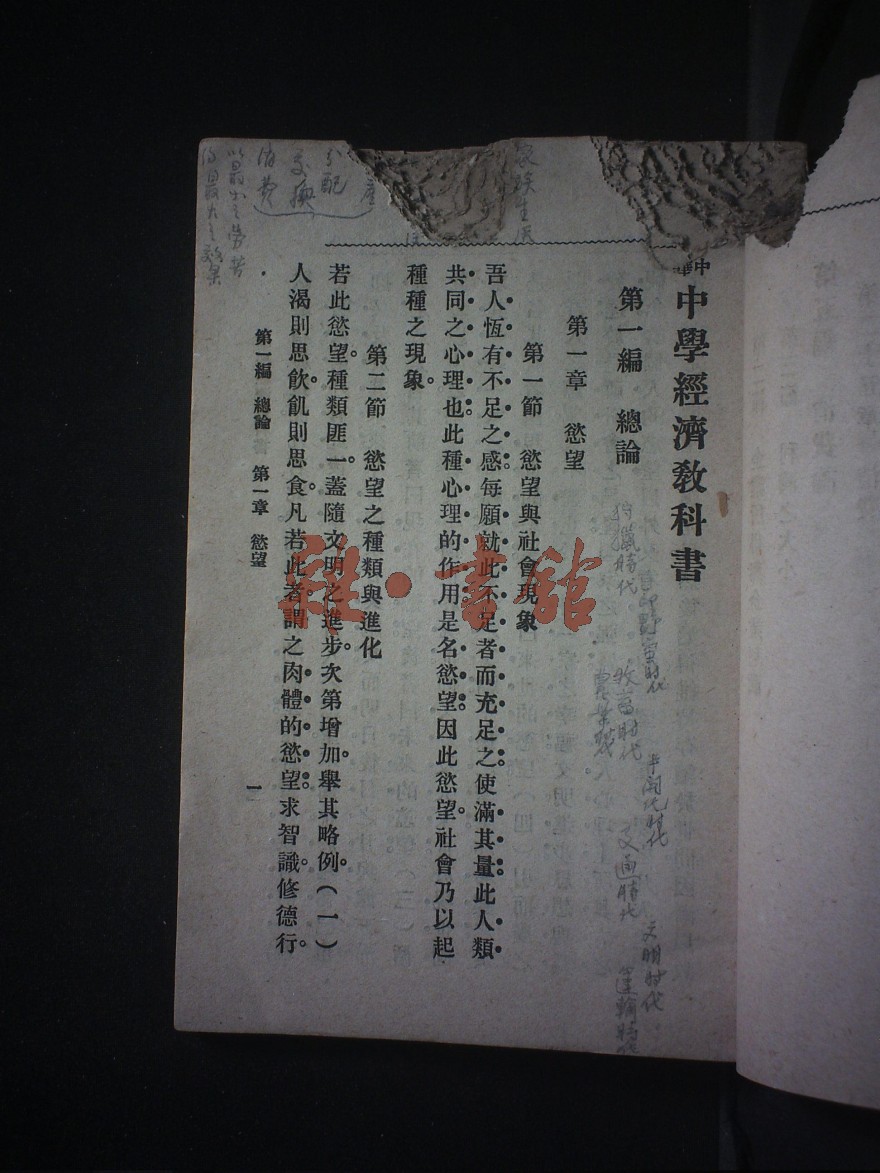 中華
中學經濟教科書
第一編　總論
第一章　慾望
第一節　慾望與社會現象
吾人恆有不足之感。每願就此不足者而充足之。使滿其量。此人類
共同之心理也。此種心理的作用。是名慾望。因此慾望。社會乃以起
種種之現象。
第二節　慾望之種類與進化
若此慾望。種類匪一。蓋隨文明之進步。次第增加。舉其略例。（一）
人渴則思飲。飢則思食。凡若此者。謂之肉體的慾望。求智識。修德行。
第一編　總論　第一章　慾望
一
狩獵時代
野蠻時代
牧畜時代
半開化時代
交通時代
文明時代
運輸時代
分配
交換
消費
以最小之勞苦
得最大之效果
雜·書館